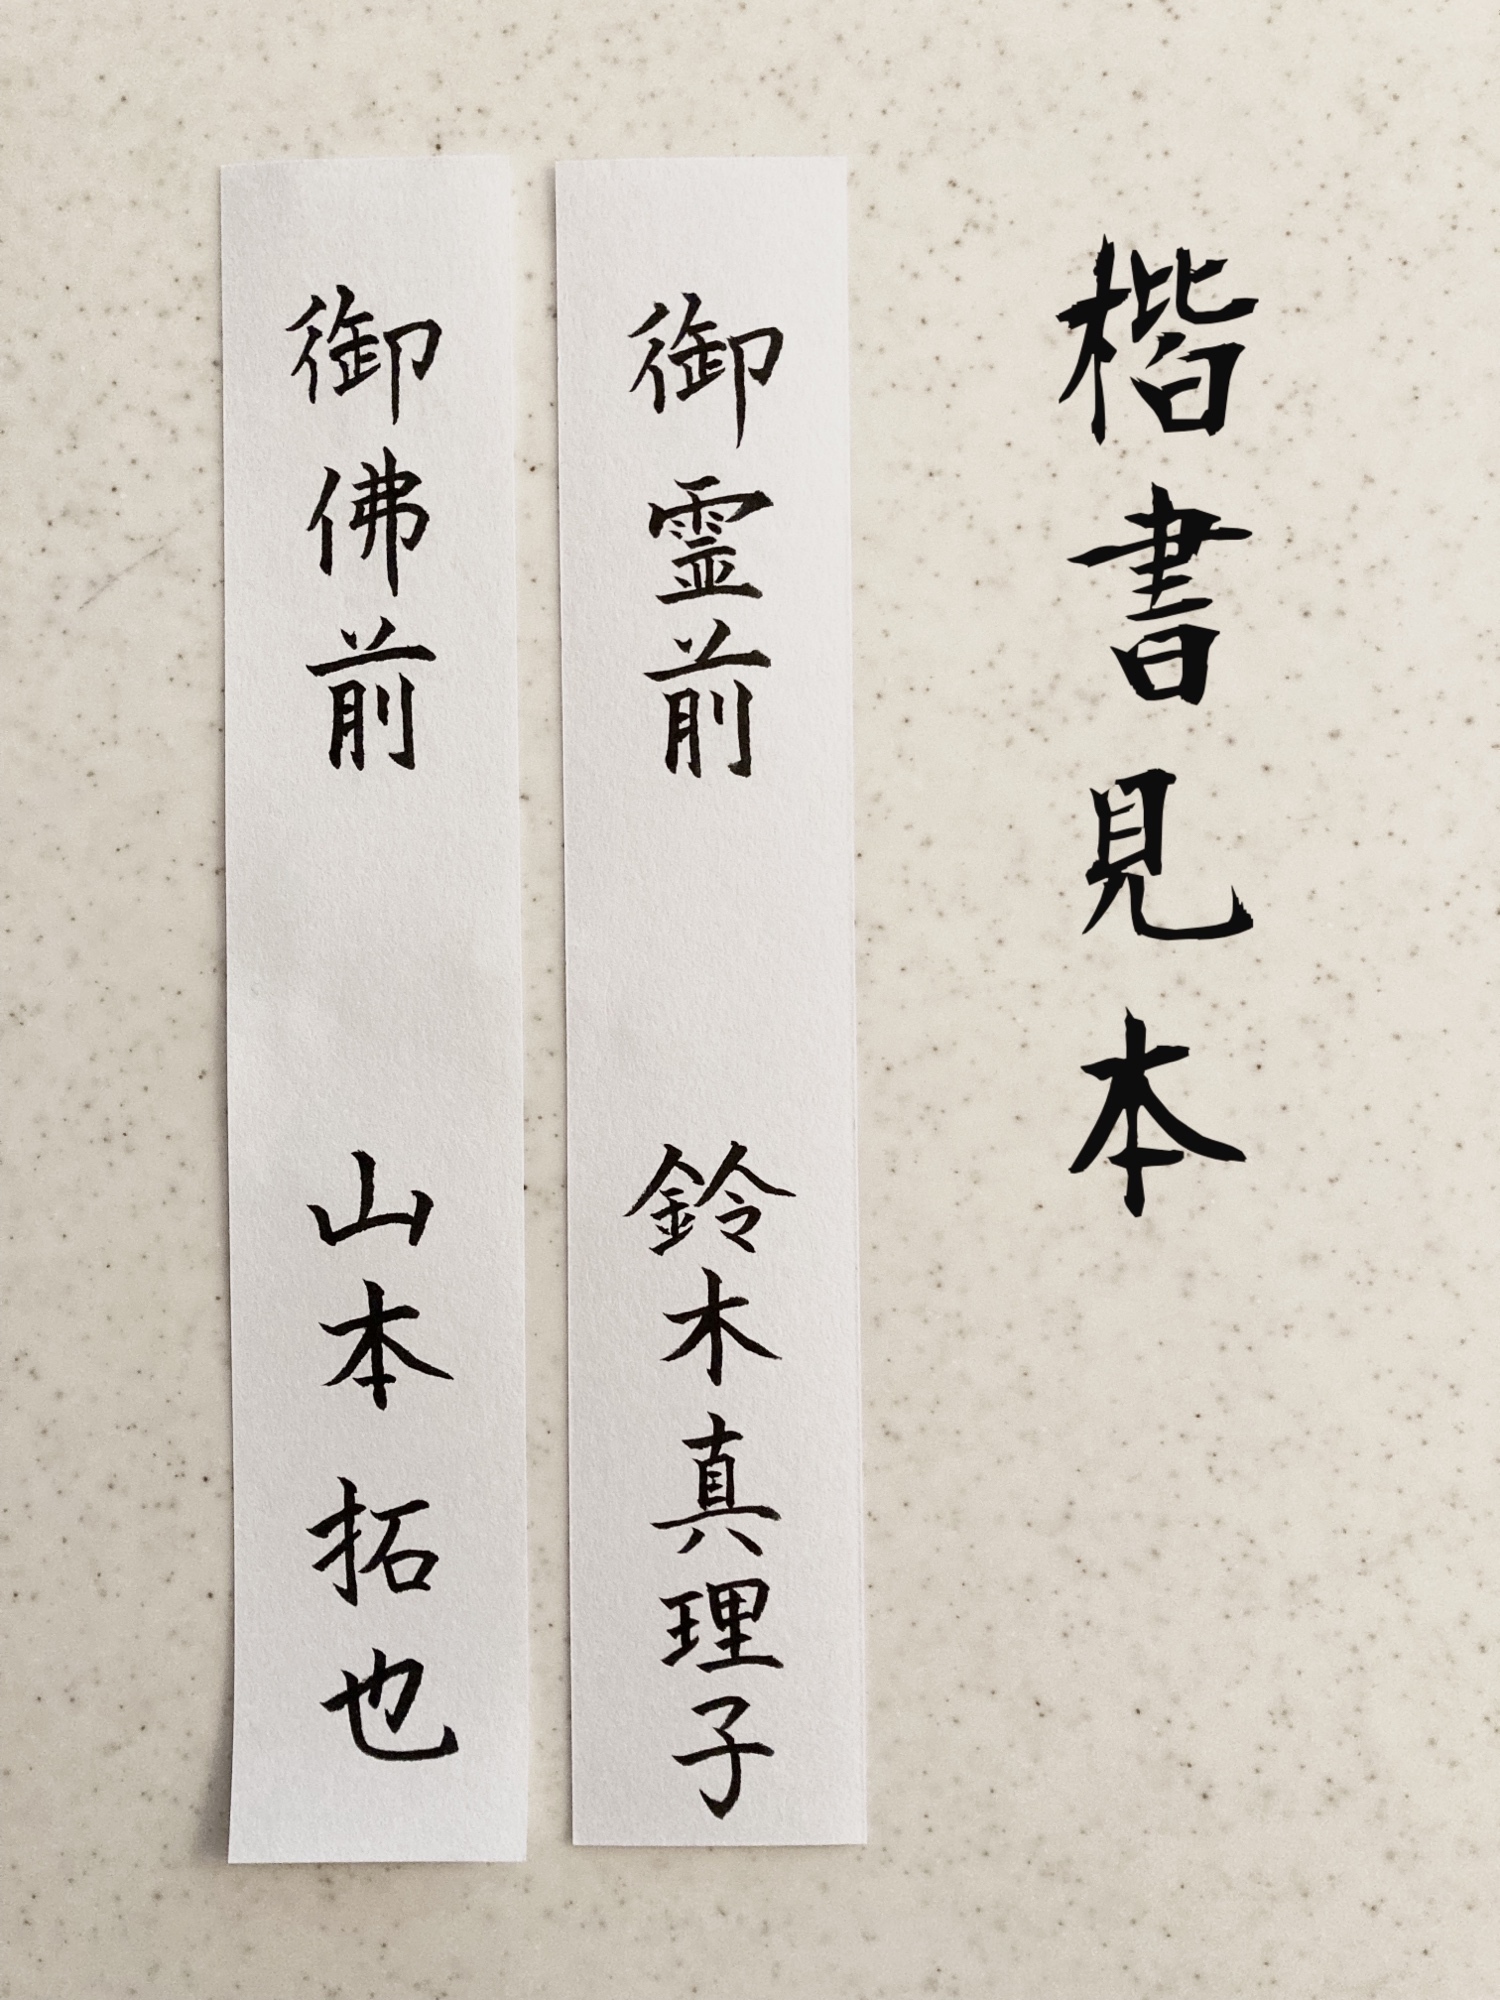 楷書見本
御霊前 鈴木真理子
御佛前 山本拓也